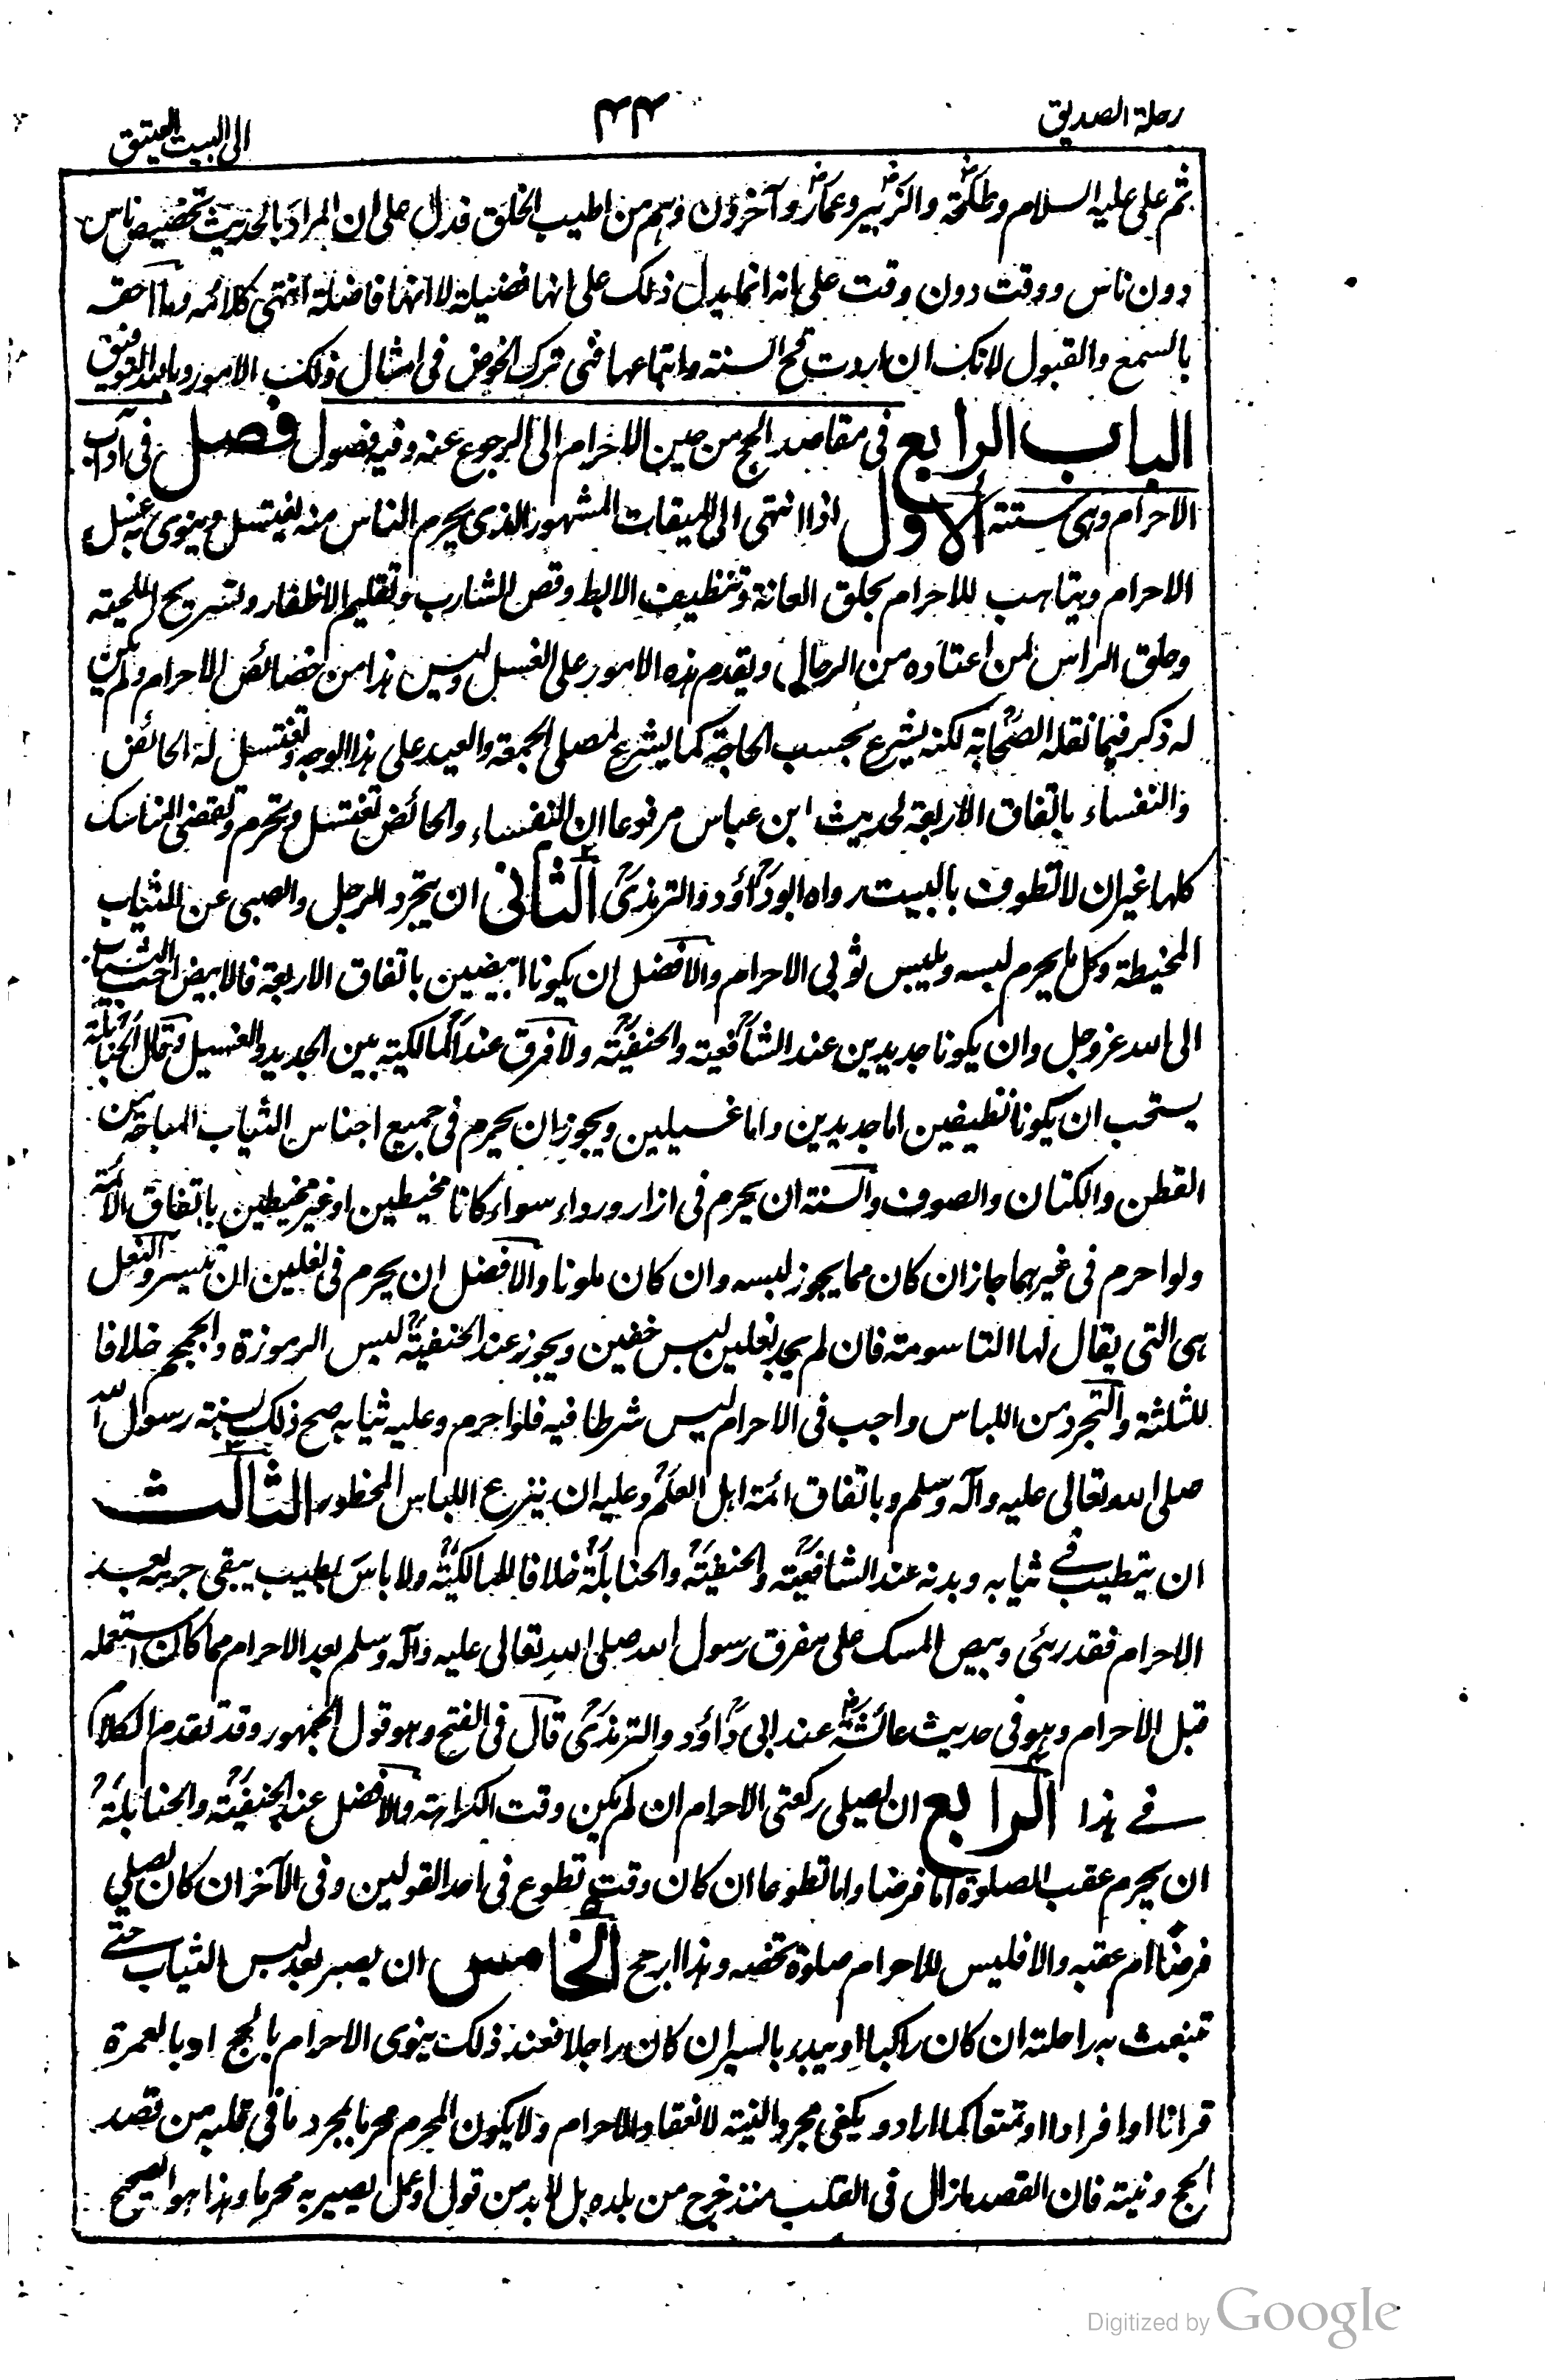 رحلة الصديق
٤٤
الى البيت العتيق
ثم على عليه السلام وطلحة والزبير وعمار وآخرون وهم من اطيب الخلق فدل على ان المراد بالحديث تخصيص ناس
دون ناس ووقت دون وقت على انه انما يدل ذلك على انها فضيلة لا انها فاضلة انتهى كلامه وما احقه
بالسمع والقبول لانك ان اردت محج السنة واتباعها فثى ترك الخوض فى امثال ذلك الامور وبالله التوفيق
الباب الرابع فى مقاصد الحج من حين الاحرام الى الرجوع عنه وفيه فصول فصل فى آداب
الاحرام وهى ستة الاول اذا انتهى الى الميقات المشهور الذى يحرم الناس منه يغتسل وينوى به غسل
الاحرام ويتاهب للاحرام بحلق العانة وتنظيف الابط وقص الشارب وتقليم الاظفار وتسريح اللحية
وحلق الراس لمن اعتاده من الرجال ويقدم هذه الامور على الغسل وليس هذا من خصائص الاحرام ولم يكن
له ذكر فيما نقله الصحابة لكنه يشرع بحسب الحاجة كما يشرع لمصلى الجمعة والعيد على هذا الوجه وتغتسل له الحائض
والنفساء باتفاق الاربعة لحديث ابن عباس مرفوعا ان النفساء والحائض تغتسل وتحرم وتقضى المناسك
كلها غير ان لا تطوف بالبيت رواه ابو داؤد والترمذى الثانى ان يتجرد الرجل والصبى عن الثياب
المخيطة وكل ما يحرم لبسه ويلبس ثوبى الاحرام والافضل ان يكونا ابيضين باتفاق الاربعة فالابيض احب الثياب
الى الله عز وجل وان يكونا جديدين عند الشافعية والحنفية ولا فرق عند المالكية بين الجديد والغسيل وقال الحنابلة
يستحب ان يكونا نظيفين اما جديدين واما غسيلين ويجوز ان يحرم فى جميع اجناس الثياب المباحة من
القطن والكتان والصوف والسنة ان يحرم فى ازار ورداء سواء كانا مخيطين او غير مخيطين باتفاق الائمة
ولو احرم فى غيرهما جاز ان كان مما يجوز لبسه وان كان ملونا والافضل ان يحرم فى نعلين ان تيسر والنعل
هى التى يقال لها التاسومة فان لم يجد نعلين لبس خفين ويجوز عند الحنفية لبس الرموزة والجمجم خلافا
للثلثة والتجرد من اللباس واجب فى الاحرام ليس شرطا فيه فلو احرم وعليه ثيابه صح ذلك بسنة رسول الله
صلى الله تعالى عليه وآله وسلم وباتفاق ائمة اهل العلم وعليه ان ينزع اللباس المحظور الثالث
ان يتطيب فى ثيابه وبدنه عند الشافعية والحنفية والحنابلة خلافا للمالكية ولا باس بطيب يبقى جرمه بعد
الاحرام فقد رئى وبيص المسك على مفرق رسول الله صلى الله تعالى عليه وآله وسلم بعد الاحرام مما كان استعمله
قبل الاحرام وهو فى حديث عائشة عند ابى داؤد والترمذى قال فى الفتح وهو قول الجمهور وقد تقدم الكلام
فى هذا الرابع ان يصلى ركعتى الاحرام ان لم يكن وقت الكراهة والافضل عند الحنفية والحنابلة
ان يحرم عقب الصلوة اما فرضا واما تطوعا ان كان وقت تطوع فى احد القولين وفى الآخر ان كان يصلى
فرضا احرم عقبه والا فليس للاحرام صلوة تخصه وهذا ارجح الخامس ان يصبر بعد لبس الثياب حتى
تنبعث به راحلته ان كان راكبا او يبدء بالسير ان كان راجلا فعند ذلك ينوى الاحرام بالحج او بالعمرة
قرانا او افرادا او تمتعا كما اراد ويكفى مجرد النية لانعقاد الاحرام ولا يكون المحرم محرما بمجرد ما فى قلبه من قصد
الحج ونيته فان القصد ما زال فى القلب منذ خرج من بلده بل لا بد من قول او عمل يصير به محرما وهذا هو الصحيح
Digitized by Google